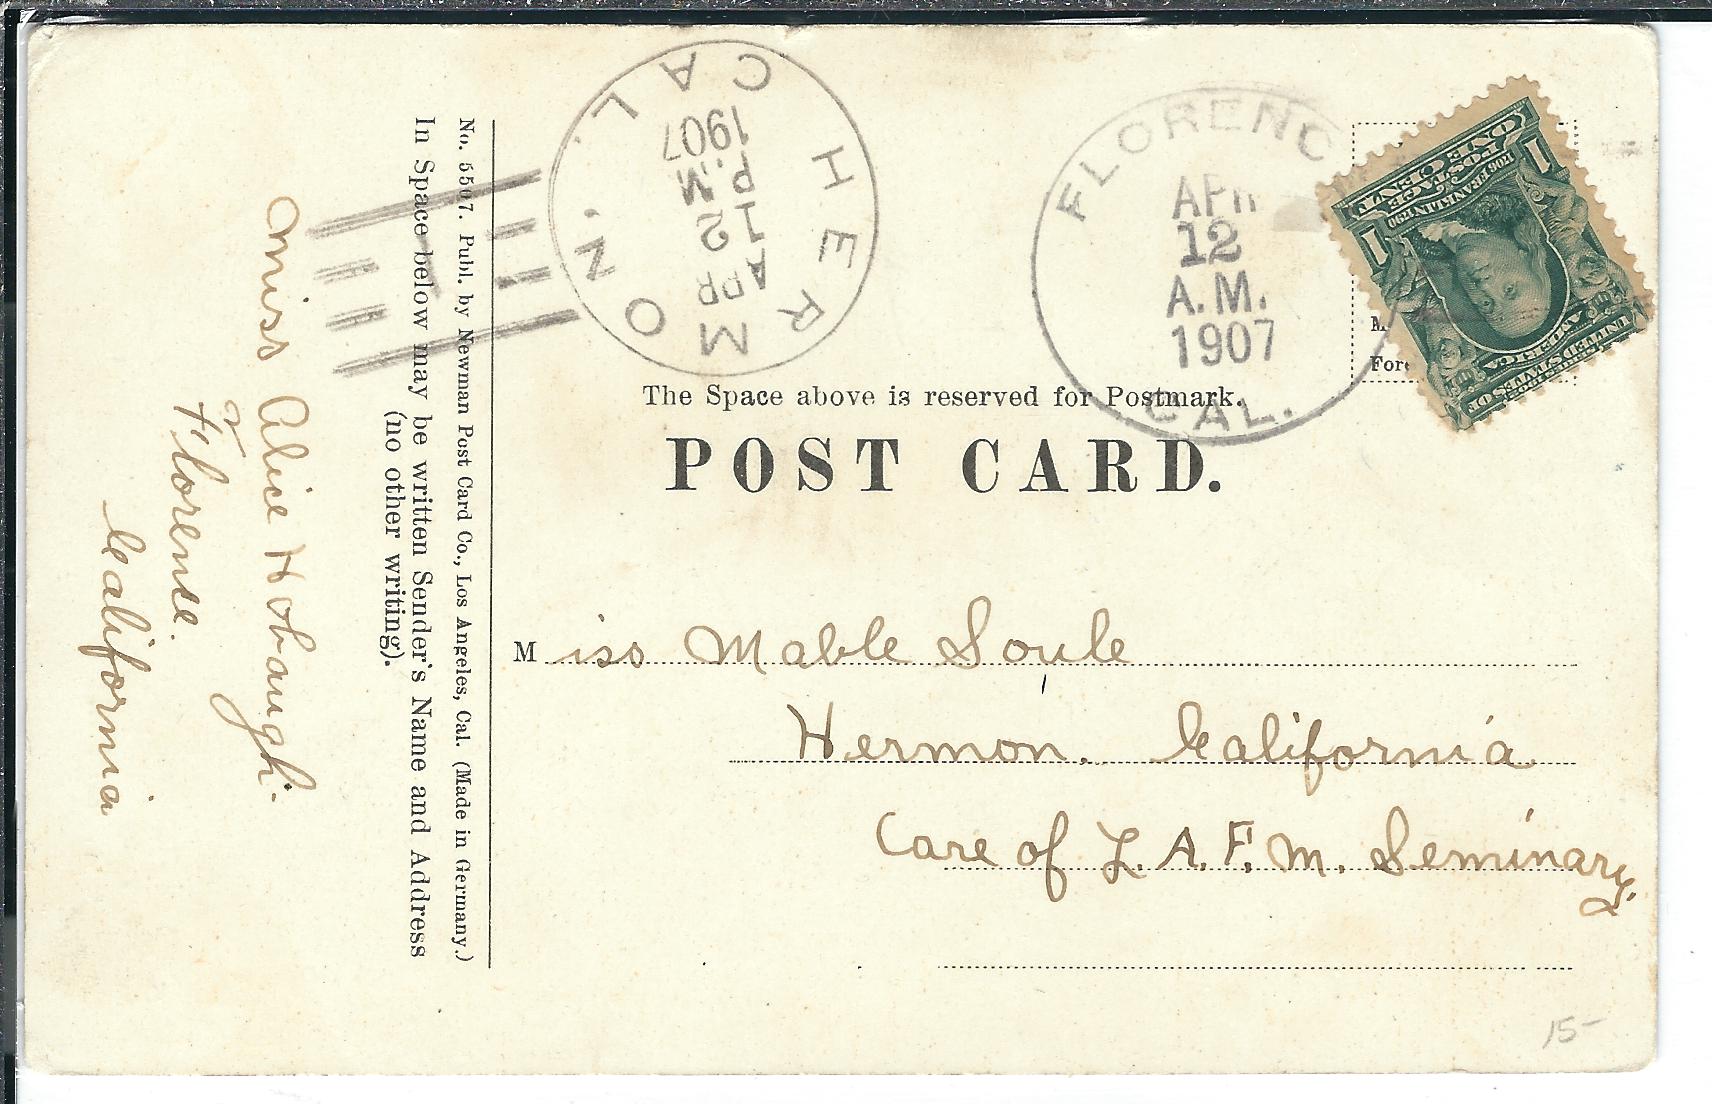 HERMON, CAL.
APR
12
P.M
1907
FLORENC
APR
12
A.M.
1907
CAL.
1 POSTAGE 1
ONE CENT
1706 FRANKLIN 1790
UNITED STATES OF
AMERICA
The Space above is reserved for Postmark.
POST CARD.
Miss Mable Soule
Hermon. California
Care of L. A. F. M. Seminary.
No. 5507. Publ. by Newman Post Card Co., Los Angeles, Cal. (Made in Germany.)
In Space below may be written Sender's Name and Address
(no other writing).
Miss Alice Hobaugh.
Florense.
California
15-